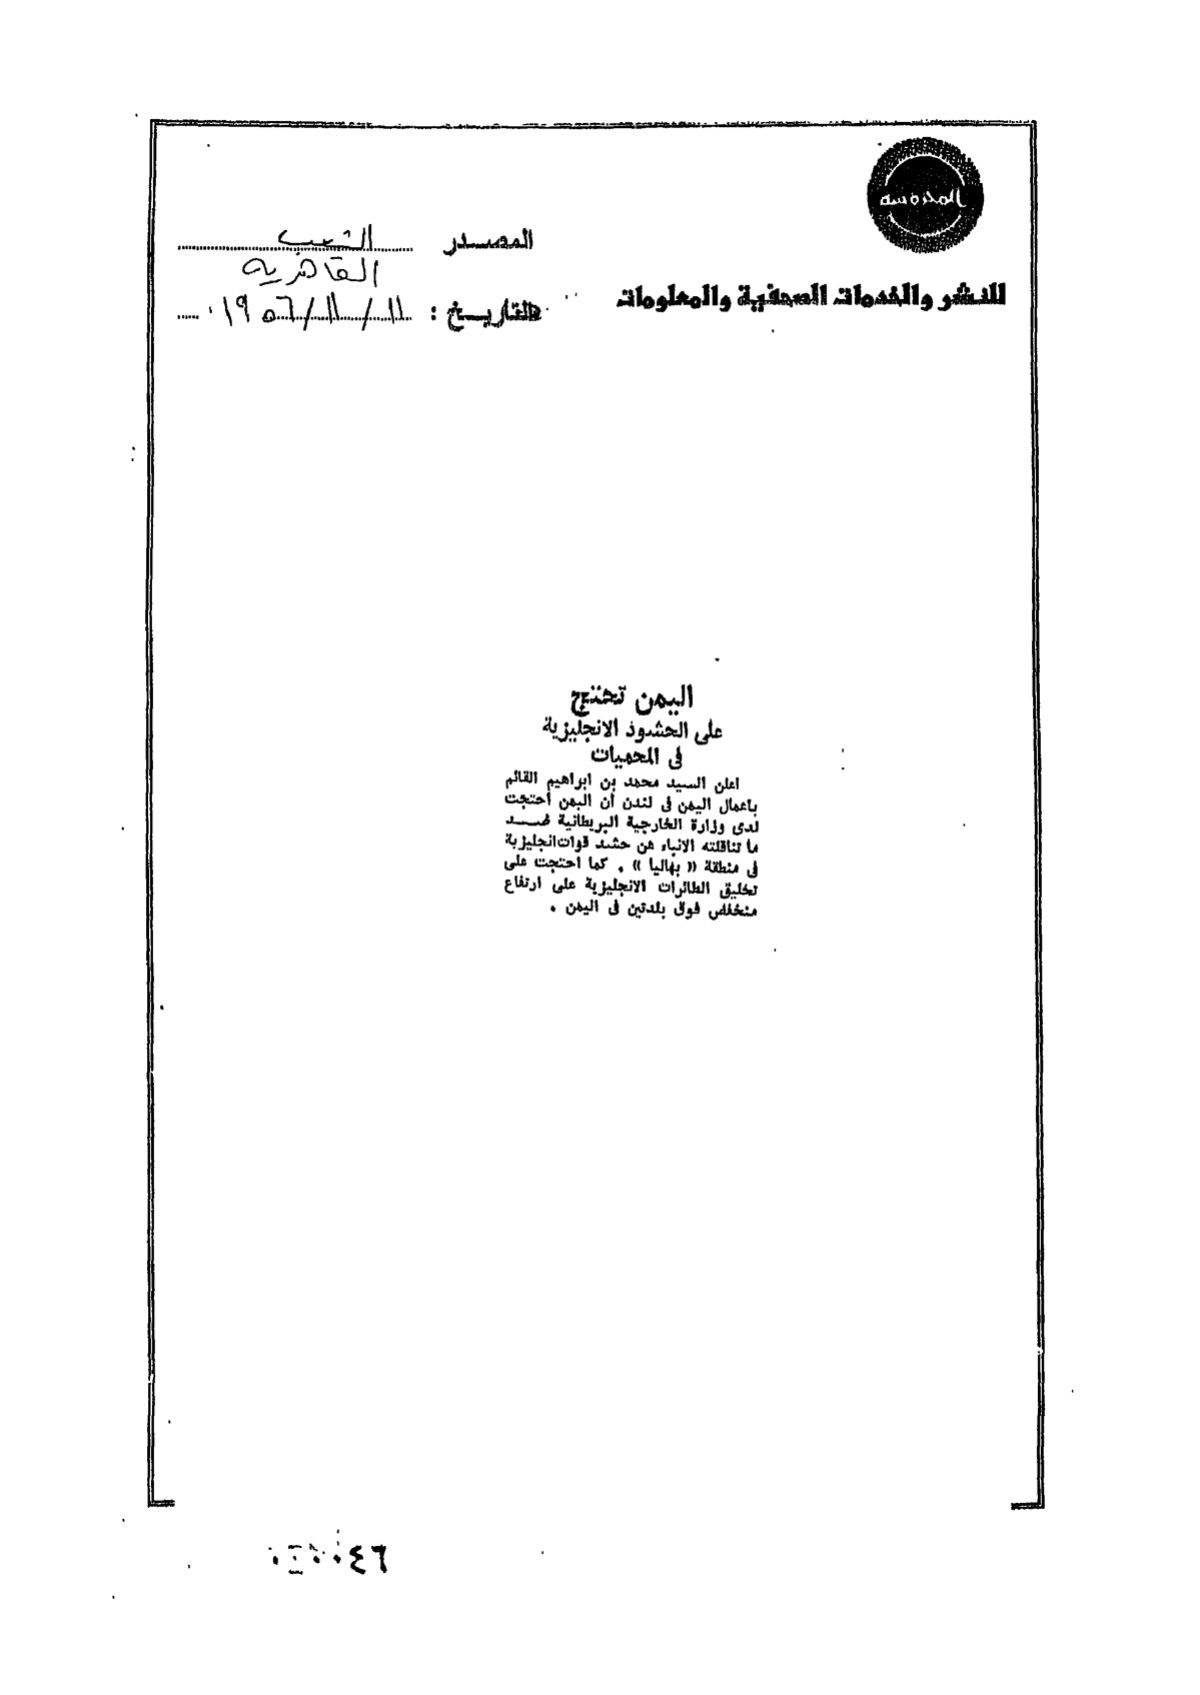 المحروسة
للنشر والخدمات الصحفية والمعلومات
المصدر الشعب
القاهرية
التاريخ : ١١/١١/١٩٥٦
اليمن تحتج
على الحشود الانجليزية
فى المحميات
اعلن السيد محمد بن ابراهيم القائم
باعمال اليمن فى لندن أن اليمن احتجت
لدى وزارة الخارجية البريطانية ضــد
ما تناقلته الانباء عن حشد قوات انجليزية
فى منطقة « بهاليا » . كما احتجت على
تحليق الطائرات الانجليزية على ارتفاع
منخفض فوق بلدتين فى اليمن .
٤٦